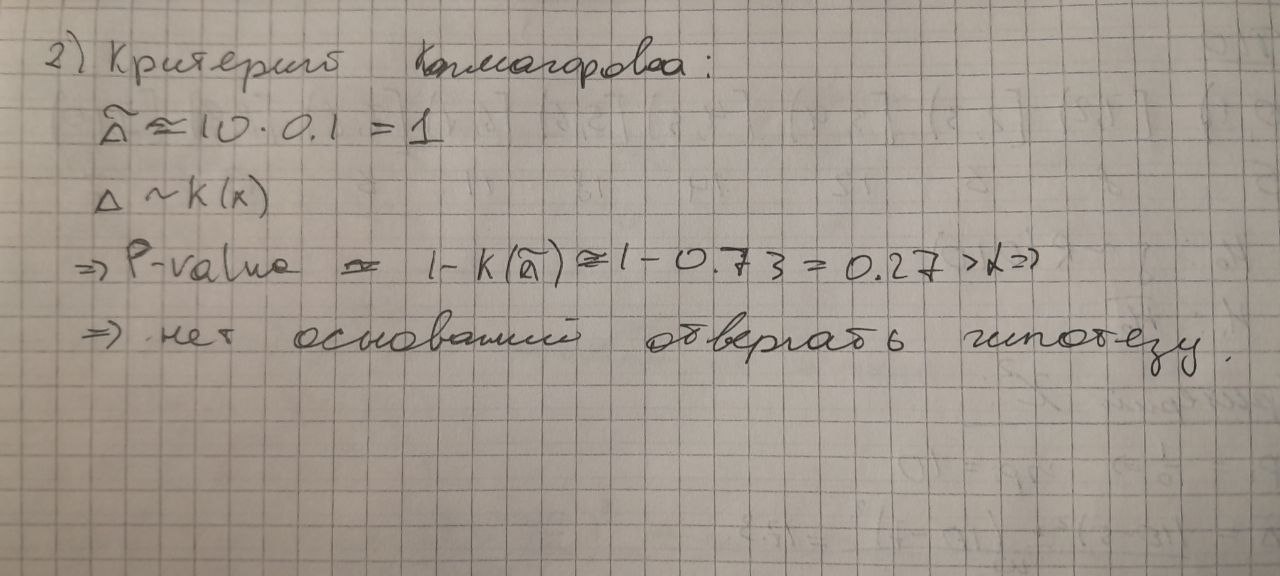 2) Критерий Колмогорова:
Δ̃ ≈ 10 · 0.1 = 1
Δ ~ K(x)
⇒ P-value ≈ 1 - K(Δ̃) ≈ 1 - 0.73 = 0.27 > α ⇒
⇒ нет оснований отвергать гипотезу.